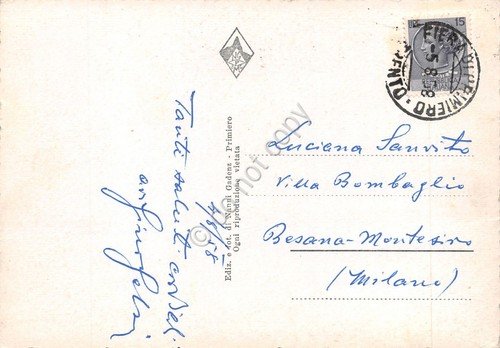 15
FIERA DI PRIMIERO
-5.8.58
TRENTO
Tanti saluti cordiali
4/8/58
Ediz. e fot. di Nino Gadenz - Primiero
Ogni riproduzione vietata
Luciana Sanvito
Villa Bombaglio
Besana-Montesiro
(Milano)
do not copy